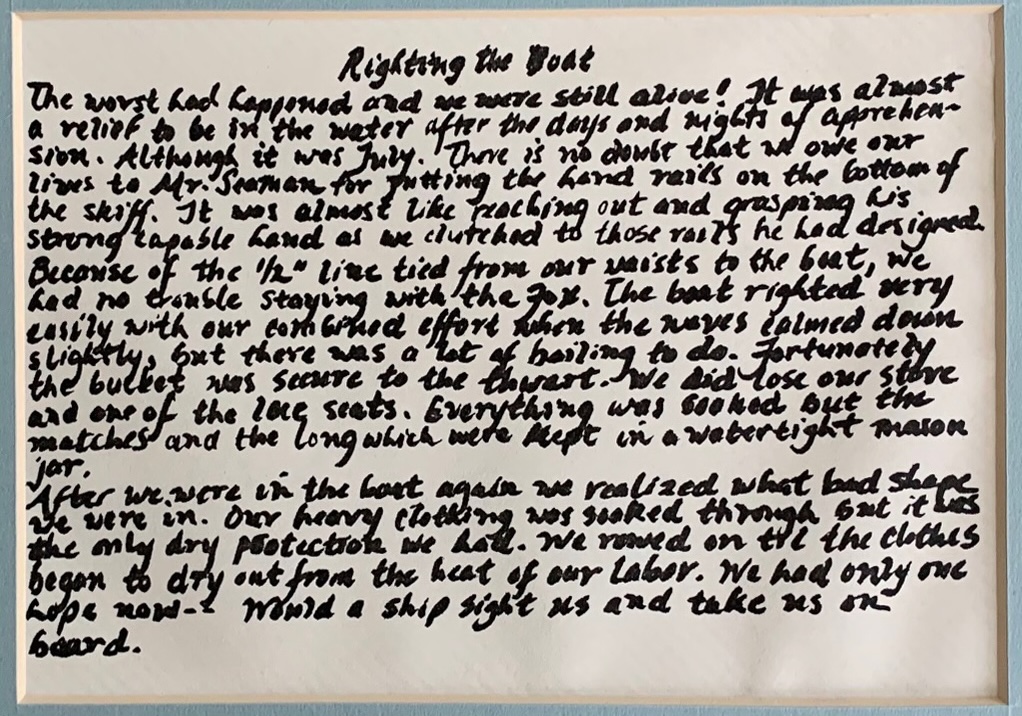 Righting the Boat
The worst had happened and we were still alive! It was almost
a relief to be in the water after the days and nights of apprehen-
sion. Although it was July. There is no doubt that we owe our
lives to Mr. Seaman for putting the hand rails on the bottom of
the skiff. It was almost like reaching out and grasping his
strong capable hand as we clutched to those rails he had designed.
Because of the 1/2" line tied from our waists to the boat, we
had no trouble staying with the Fox. The boat righted very
easily with our combined effort when the waves calmed down
slightly, but there was a lot of bailing to do. Fortunately
the bucket was secure to the thwart. We did lose our stove
and one of the seats. Everything was soaked but the
matches and the which were kept in a watertight mason
jar.
After we were in the boat again we realized what bad shape
we were in. Our heavy clothing was soaked through but it was
the only dry protection we had. We rowed on til the clothes
began to dry out from the heat of our labor. We had only one
hope now-- Would a ship sight us and take us on
board.